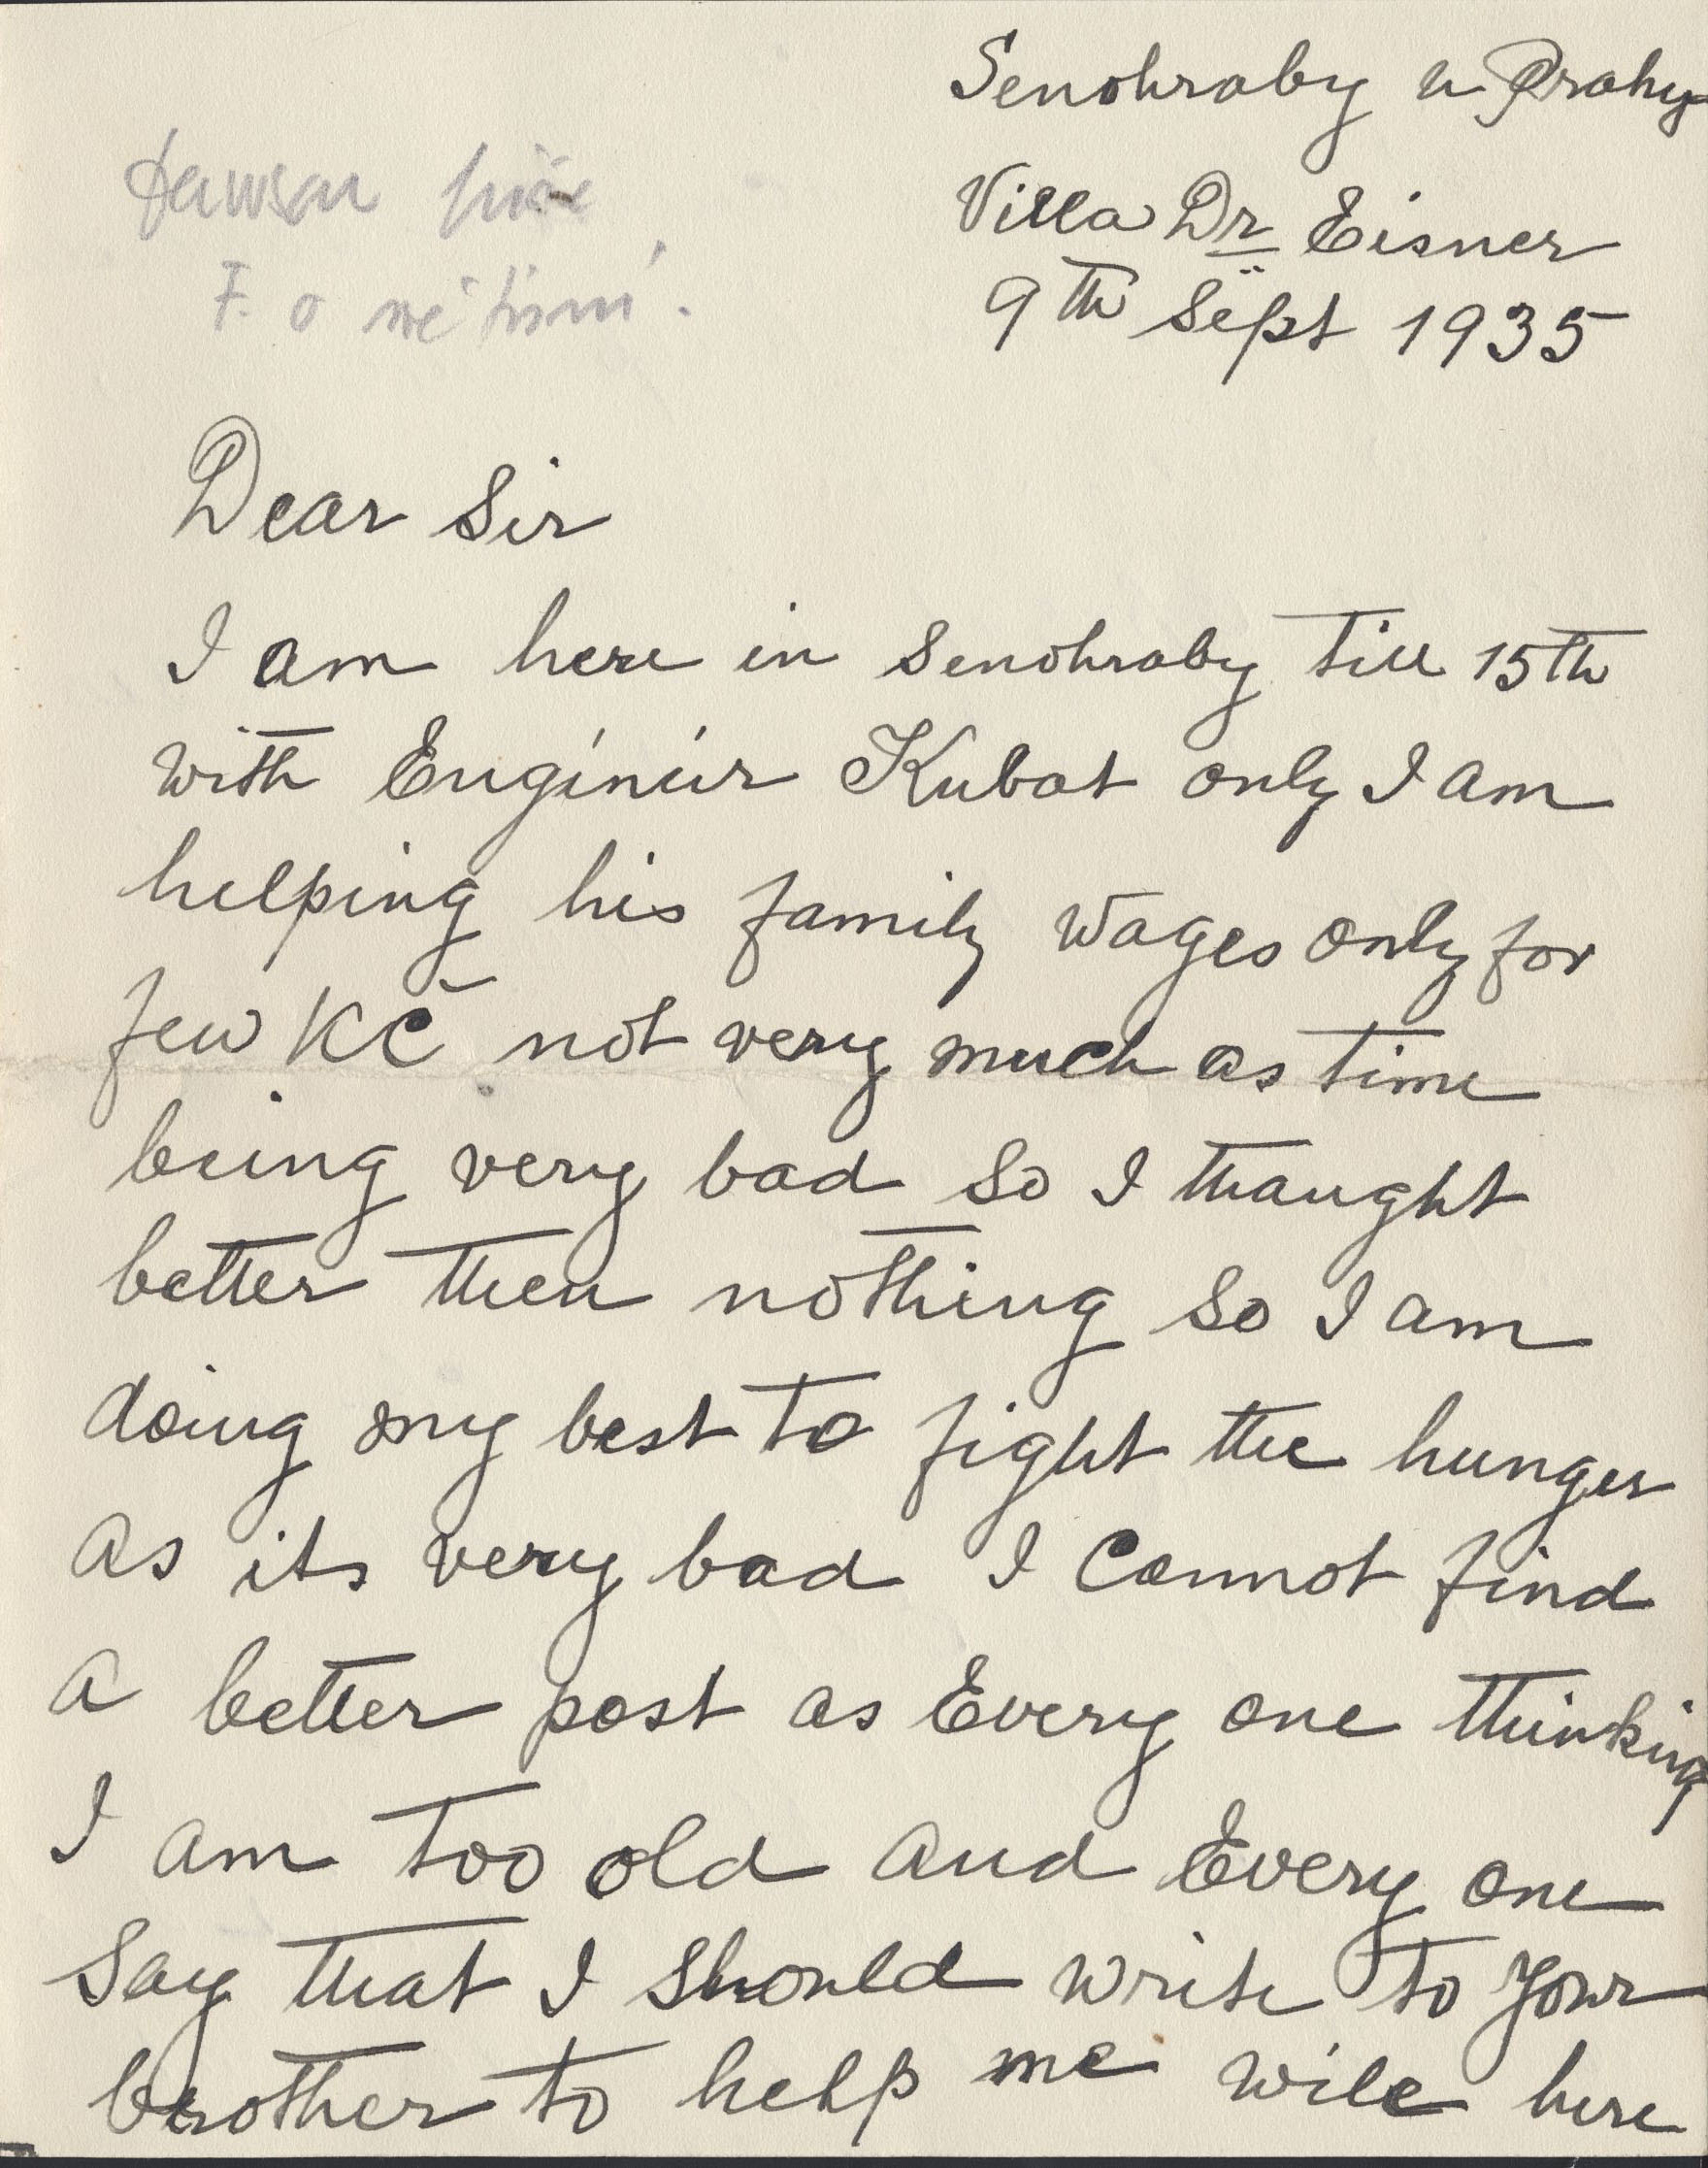 Senohraby u Prahy
Villa Dr Eisner
9th Sept 1935
F. o
Dear Sir
I am here in Senohraby till 15th
with Enginéur Kubat only I am
helping his family wages only for
few Kč not very much as time
being very bad so I thaught
better then nothing so I am
doing my best to fight the hunger
as its very bad I cannot find
a better post as Every one thinking
I am too old and Every one
Say that I should write to Your
brother to help me wile here